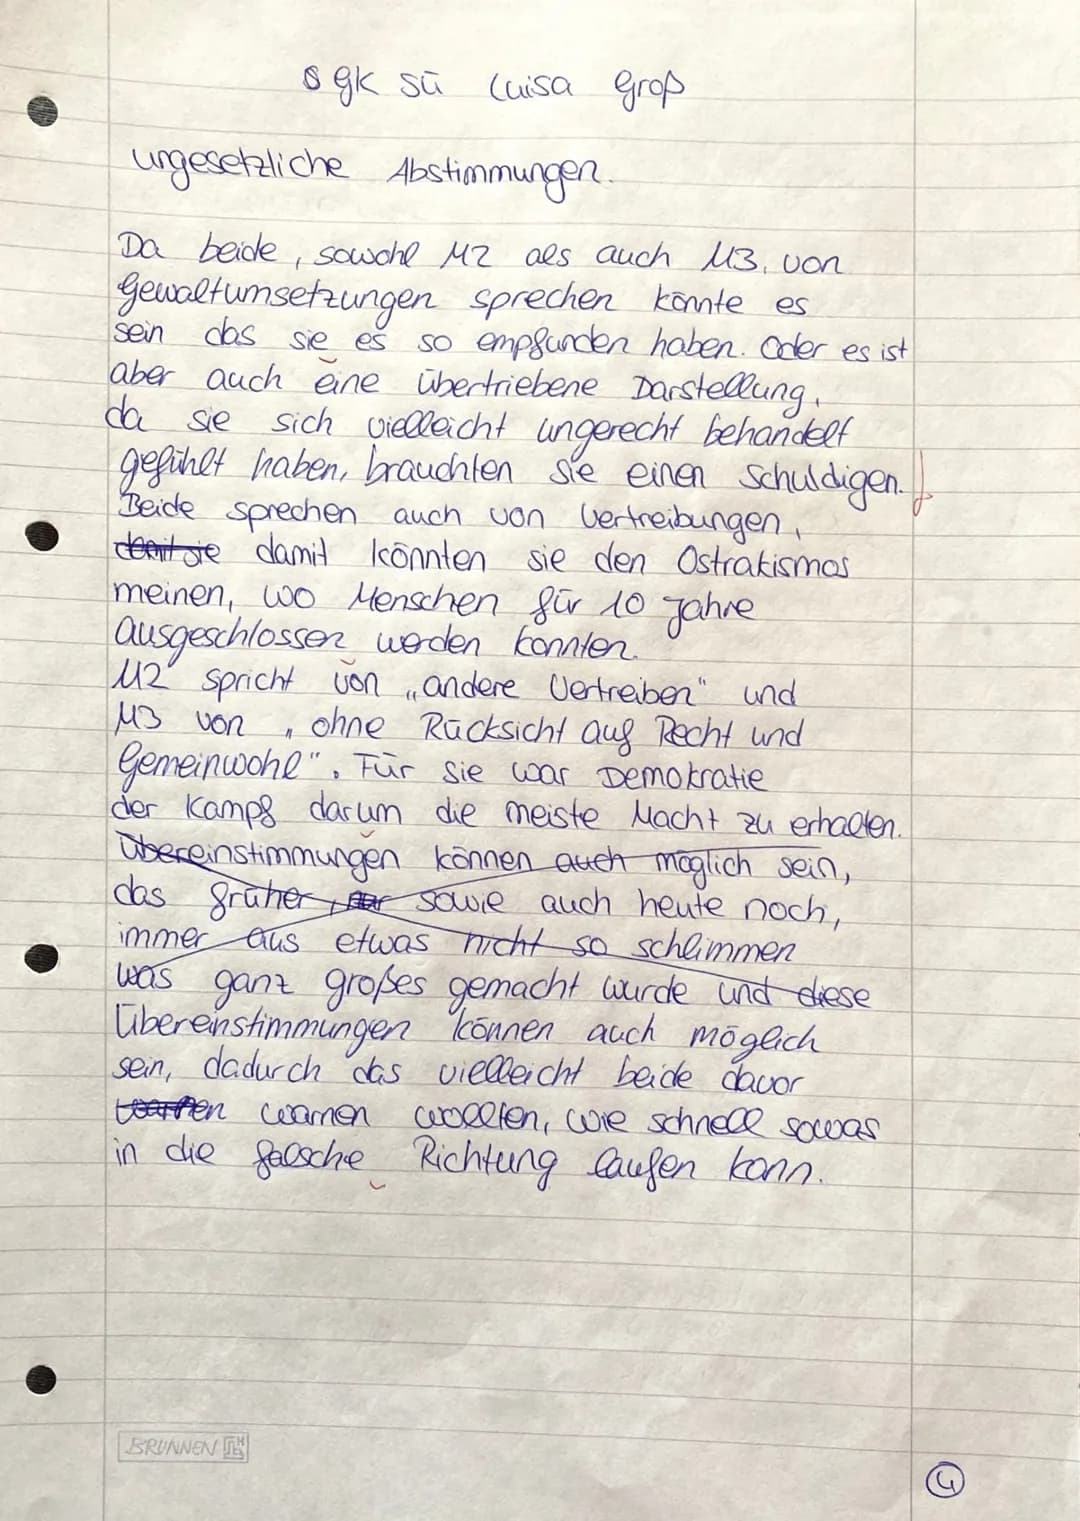 gk sü Luisa Groß
ungesetzliche Abstimmungen.
Da beide, sowohl M2 als auch M3, von
Gewaltumsetzungen sprechen könnte es
sein das sie es so empfunden haben. Oder es ist
aber auch eine übertriebene Darstellung,
da sie sich vielleicht ungerecht behandelt
gefühlt haben, brauchten sie einen Schuldigen.
Beide sprechen auch von Vertreibungen,
damit sie damit könnten sie den Ostrakismos
meinen, wo Menschen für 10 Jahre
ausgeschlossen werden konnten.
M2 spricht von „andere Vertreiben" und
M3 von „ohne Rücksicht auf Recht und
Gemeinwohl". Für sie war Demokratie
der Kampf darum die meiste Macht zu erhalten.
Übereinstimmungen können auch möglich sein,
das früher, nur sowie auch heute noch,
immer aus etwas nicht so schlimmen
was ganz großes gemacht wurde und diese
Übereinstimmungen können auch möglich
sein, dadurch das vielleicht beide davor
warnen wollten, wie schnell sowas
in die falsche Richtung laufen kann.
BRUNNEN
4